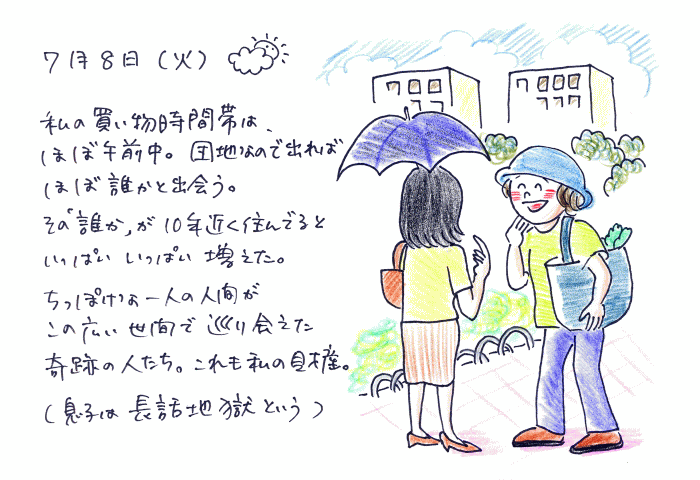 7月8日(火)
私の買い物時間帯は、
ほぼ午前中。団地なので出れば
ほぼ誰かと出会う。
その「誰か」が10年近く住んでると
いっぱいいっぱい増えた。
ちっぽけな一人の人間が
この広い世間で巡り会えた
奇跡の人たち。これも私の財産。
(息子は長話地獄という)